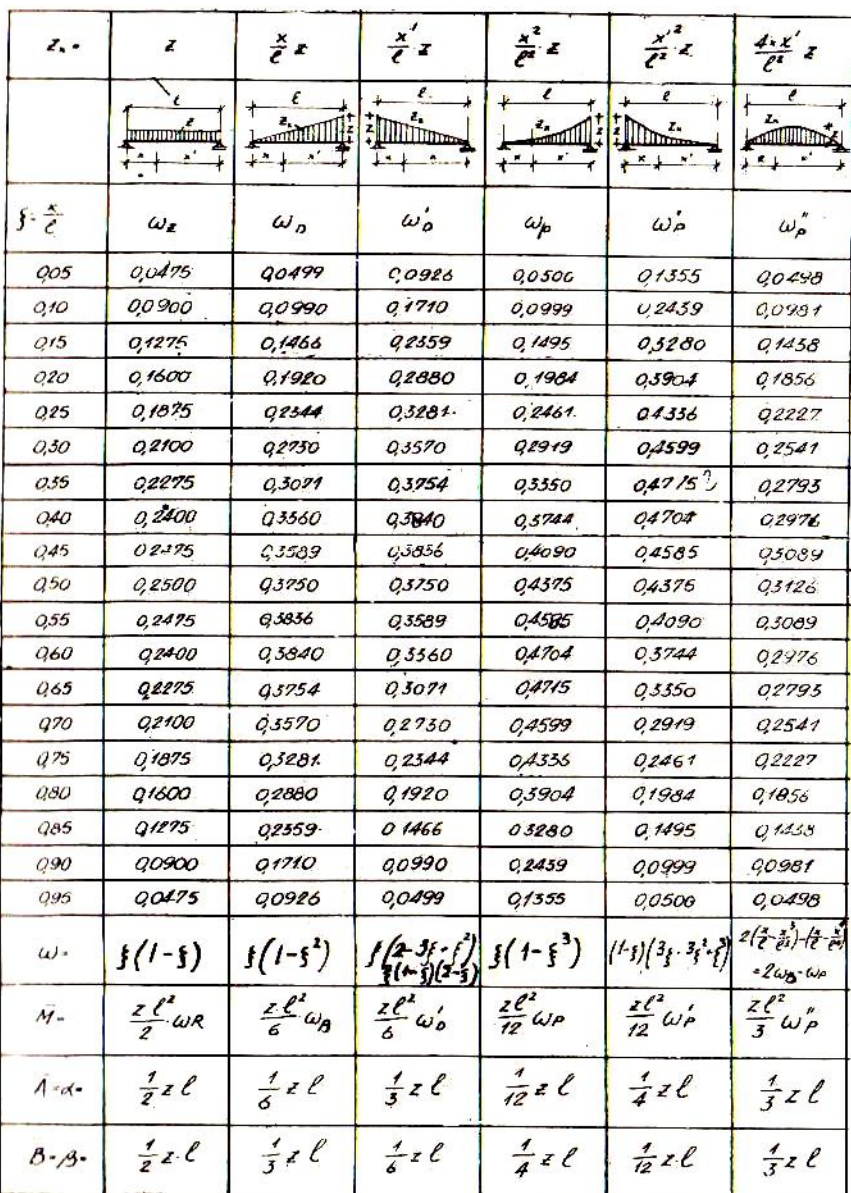 Zₓ = Z x/ℓ z x'/ℓ z x²/ℓ² z x'²/ℓ² z 4xx'/ℓ² z
ℓ ℓ ℓ ℓ ℓ ℓ
z Zₓ z z Zₓ Zₓ z z Zₓ Zₓ z
x x' x x' x x x x' x x' x x'
ξ = x/ℓ ω_z ω_D ω'_D ω_p ω'_p ω''_p
0,05 0,0475 0,0499 0,0926 0,0500 0,1355 0,0498
0,10 0,0900 0,0990 0,1710 0,0999 0,2439 0,0981
0,15 0,1275 0,1466 0,2359 0,1495 0,3280 0,1438
0,20 0,1600 0,1920 0,2880 0,1984 0,3904 0,1856
0,25 0,1875 0,2344 0,3281 0,2461 0,4336 0,2227
0,30 0,2100 0,2730 0,3570 0,2919 0,4599 0,2541
0,35 0,2275 0,3071 0,3754 0,3350 0,4715 0,2793
0,40 0,2400 0,3360 0,3840 0,3744 0,4704 0,2976
0,45 0,2475 0,3589 0,3836 0,4090 0,4585 0,3089
0,50 0,2500 0,3750 0,3750 0,4375 0,4375 0,3126
0,55 0,2475 0,3836 0,3589 0,4585 0,4090 0,3089
0,60 0,2400 0,3840 0,3360 0,4704 0,3744 0,2976
0,65 0,2275 0,3754 0,3071 0,4715 0,3350 0,2793
0,70 0,2100 0,3570 0,2730 0,4599 0,2919 0,2541
0,75 0,1875 0,3281 0,2344 0,4336 0,2461 0,2227
0,80 0,1600 0,2880 0,1920 0,3904 0,1984 0,1856
0,85 0,1275 0,2359 0,1466 0,3280 0,1495 0,1438
0,90 0,0900 0,1710 0,0990 0,2439 0,0999 0,0981
0,95 0,0475 0,0926 0,0499 0,1355 0,0500 0,0498
ω = ξ(1-ξ) ξ(1-ξ²) ξ(2-3ξ+ξ²) ξ(1-ξ³) (1-ξ)(3ξ-3ξ²+ξ³) 2(x/ℓ - x³/ℓ³)-(x/ℓ - x⁴/ℓ⁴)
ξ(1-ξ)(2-ξ) =2ω_D-ω_p
M = zℓ²/2 · ωR zℓ²/6 · ω_D zℓ²/6 ω'_D zℓ²/12 ωp zℓ²/12 ω'p zℓ²/3 ω''p
A = α = 1/2 z ℓ 1/6 z ℓ 1/3 z ℓ 1/12 z ℓ 1/4 z ℓ 1/3 z ℓ
B = β = 1/2 z·ℓ 1/3 z ℓ 1/6 z ℓ 1/4 z ℓ 1/12 z·ℓ 1/3 z ℓ